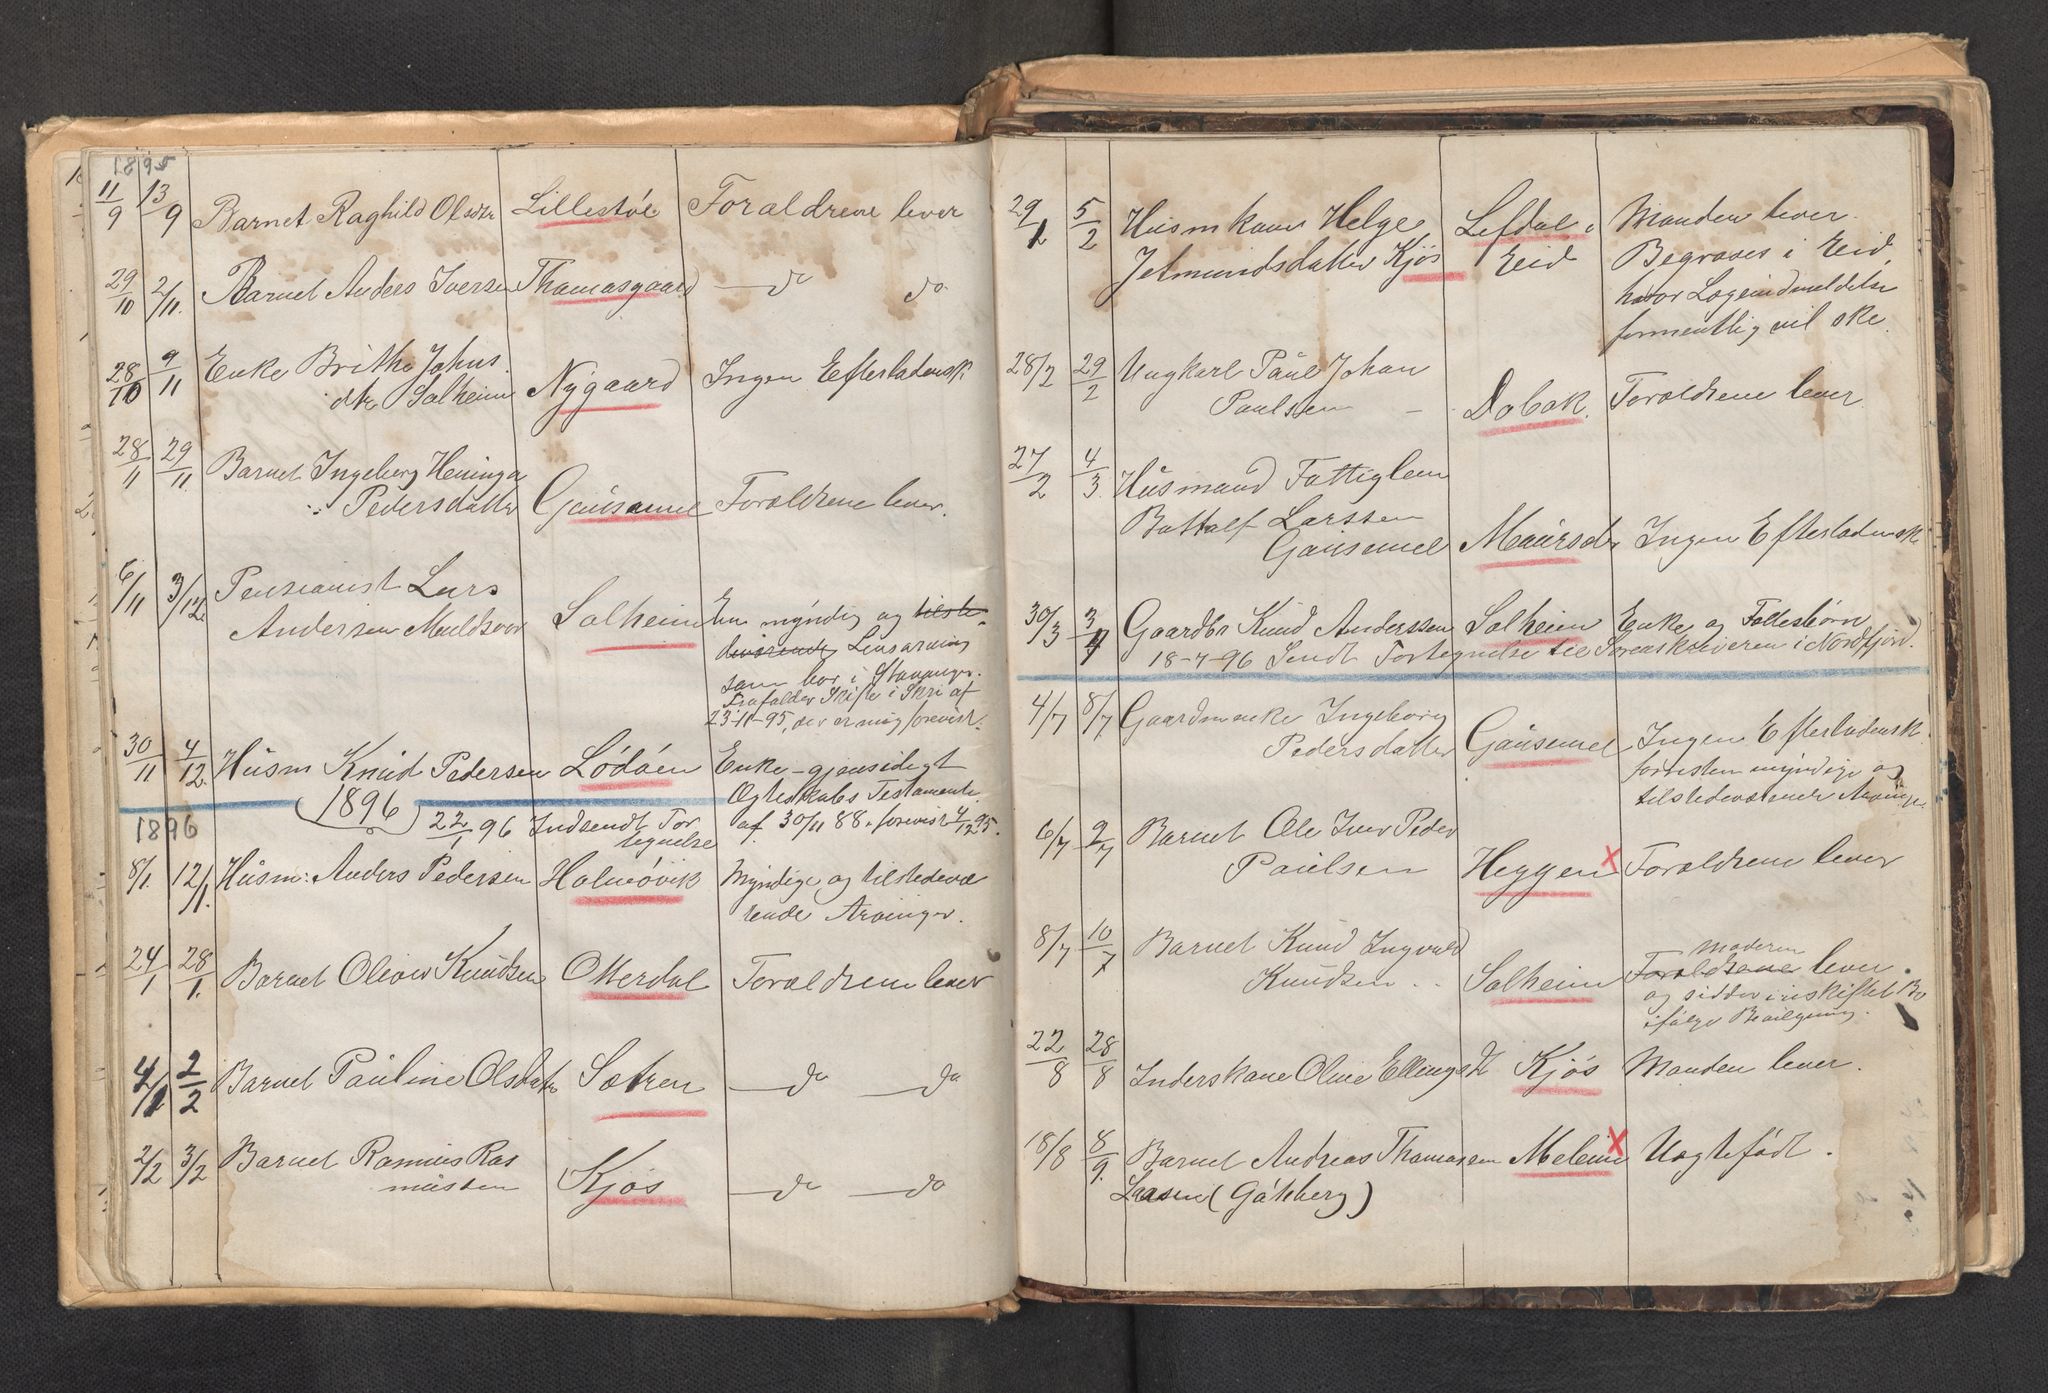 1895
11/9 13/9 Barnet Raghild Olsdtr Lillestøl Forældrene lever
29/10 2/11. Barnet Anders Iversen Thomasgaard — do do
28/10 9/11 Enke Brithe Johns.
dtr Solheim Nygaard Ingen Efterladensk
28/11 29/11. Barnet Ingeborg Heninga
Pedersdatter Gausemel Forældrene lever.
6/11 3/12. Pensionist Lars
Andersen Muldsvor Solheim En myndig og tilste-
deværende Livsarving
som bor i Stavanger.
Frafalder Skifte i Skri af
23-11-95, der er mig forevist.
30/11 4/12. Husm Knud Pedersen Lødøen Enke - gjensidigt
Ægteskabs Testamente
af 30/11 88. forevist 4/12 95.
1896
1896 22/1 96 Indsendt For
tegnelse
8/1. 12/1. Husm: Anders Pedersen Holmøvik Myndige og tilstedevæ
rende Arvinger.
24/1 28/1. Barnet Oliver Knudsen Otterdal Forældrene lever
4/1 2/2 Barnet Pauline Olsdatr Sætren — do — do
2/2 3/2 Barnet Rasmus Ras
mussen Kjøs — do — do
29/1 5/2 Husmkone Helge
Jetmundsdatter Kjøs Lefdal i
Eid Manden lever.
Begraves i Eid,
hvor Logeindmeldelse
formentlig vil ske.
28/2 29/2 Ungkarl Paul Johan
Paulsen — Dobak. Forældrene lever
27/2 4/3. Husmand Fattiglem
Bottolf Larssen
Gausemel Maursd Ingen Efterladensk
30/3 3/4 Gaardbr Knud Anderssen Solheim Enke og Fællesbørn
18-7-96 Sendt Fortegnelse til Sorenskriveren i Nordfjord.
4/7 8/7 Gaardmenke Ingeborg
Pedersdatter Gausemel Ingen Efterladensk.
forresten myndige og
tilstedeværende Arvinge.
6/7 9/7 Barnet Ole Iver Peder
Paulsen Heggen x Forældrene lever
8/7 10/7 Barnet Knud Ingvald
Knudsen . . Solheim Moderen
Forældrene lever.
og sidder i uskiftet Bo
ifølge Bevilgning.
22/8 28/8 Inderskone Oline Ellingsd Kjøs Manden lever.
18/8 8/9. Barnet Andreas Thomassen Meleim x Uægtefødt.
Larsen (Gøteberg)